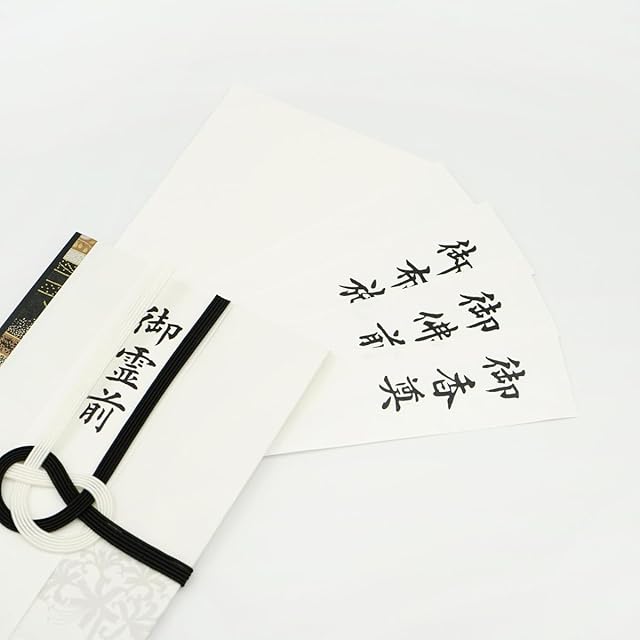 御霊前
御布施
御佛前
御香奠